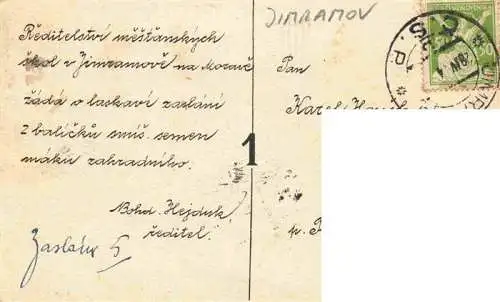 JIMRAMOV
Ředitelství měšťanských
škol v Jimramově na Moravě
žádá o laskavé zaslání
2 balíčků smíš. semen
máku zahradního.
Bohd. Hejduk,
ředitel.
Zasláno
1
Pan
Karel